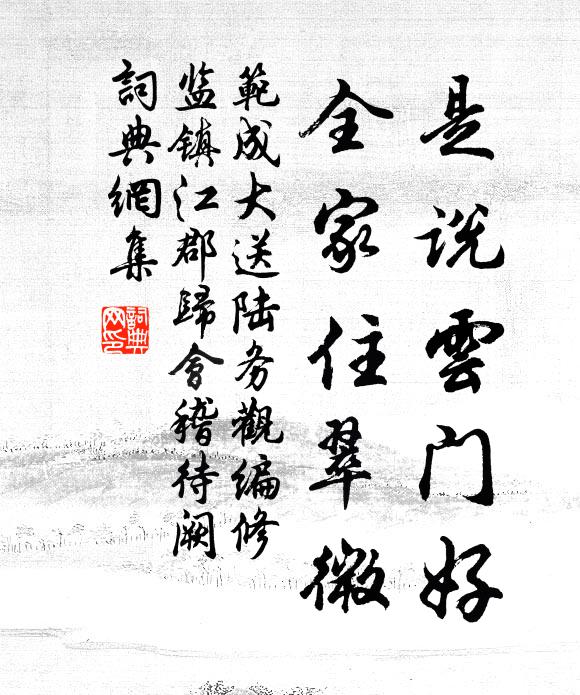 是说雲门好
全家住翠微
範成大送陆务觀编修
监镇江郡歸會稽待阙
詞典網集
詞典
网印